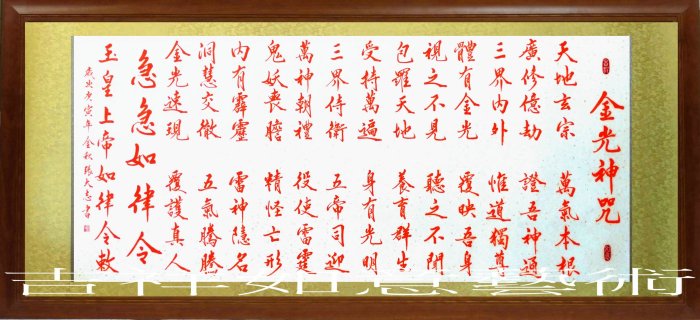 金光神咒
天地玄宗 萬氣本根
廣修億劫 證吾神通
三界內外 惟道獨尊
體有金光 覆映吾身
視之不見 聽之不聞
包羅天地 養育群生
受持萬遍 身有光明
三界侍衛 五帝司迎
萬神朝禮 役使雷霆
鬼妖喪膽 精怪亡形
內有霹靂 雷神隱名
洞慧交徹 五氣騰騰
金光速現 覆護真人
急急如律令
玉皇上帝如律令敕
歲次庚寅年金秋張大志書
吉祥如意藝術